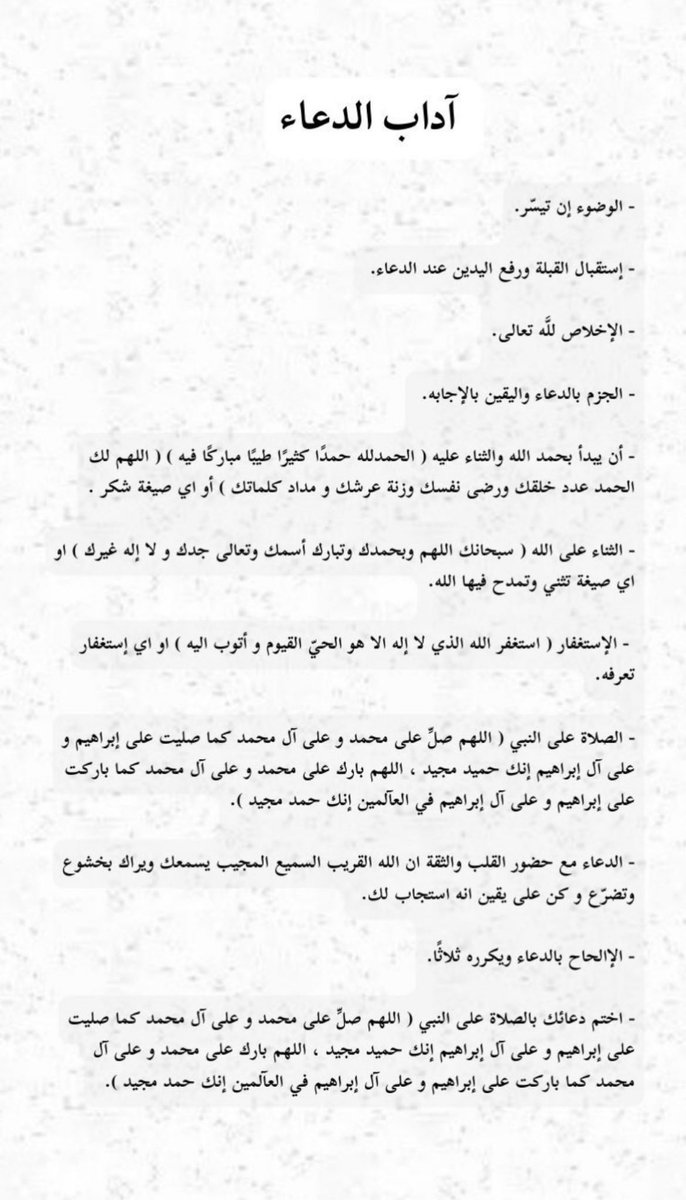 آداب الدعاء
- الوضوء إن تيسّر.
- إستقبال القبلة ورفع اليدين عند الدعاء.
- الإخلاص للَّه تعالى.
- الجزم بالدعاء واليقين بالإجابه.
- أن يبدأ بحمد الله والثناء عليه ( الحمدلله حمدًا كثيرًا طيبًا مباركًا فيه ) ( اللهم لك
الحمد عدد خلقك ورضى نفسك وزنة عرشك و مداد كلماتك ) أو اي صيغة شكر .
- الثناء على الله ( سبحانك اللهم وبحمدك وتبارك أسمك وتعالى جدك و لا إله غيرك ) او
اي صيغة تثني وتمدح فيها الله.
- الإستغفار ( استغفر الله الذي لا إله الا هو الحيّ القيوم و أتوب اليه ) او اي إستغفار
تعرفه.
- الصلاة على النبي ( اللهم صلِّ على محمد و على آل محمد كما صليت على إبراهيم و
على آل إبراهيم إنك حميد مجيد ، اللهم بارك على محمد و على آل محمد كما باركت
على إبراهيم و على آل إبراهيم في العآلمين إنك حمد مجيد ).
- الدعاء مع حضور القلب والثقة ان الله القريب السميع المجيب يسمعك ويراك بخشوع
وتضرّع و كن على يقين انه استجاب لك.
- الإالحاح بالدعاء ويكرره ثلاثًا.
- اختم دعائك بالصلاة على النبي ( اللهم صلِّ على محمد و على آل محمد كما صليت
على إبراهيم و على آل إبراهيم إنك حميد مجيد ، اللهم بارك على محمد و على آل
محمد كما باركت على إبراهيم و على آل إبراهيم في العآلمين إنك حمد مجيد ).